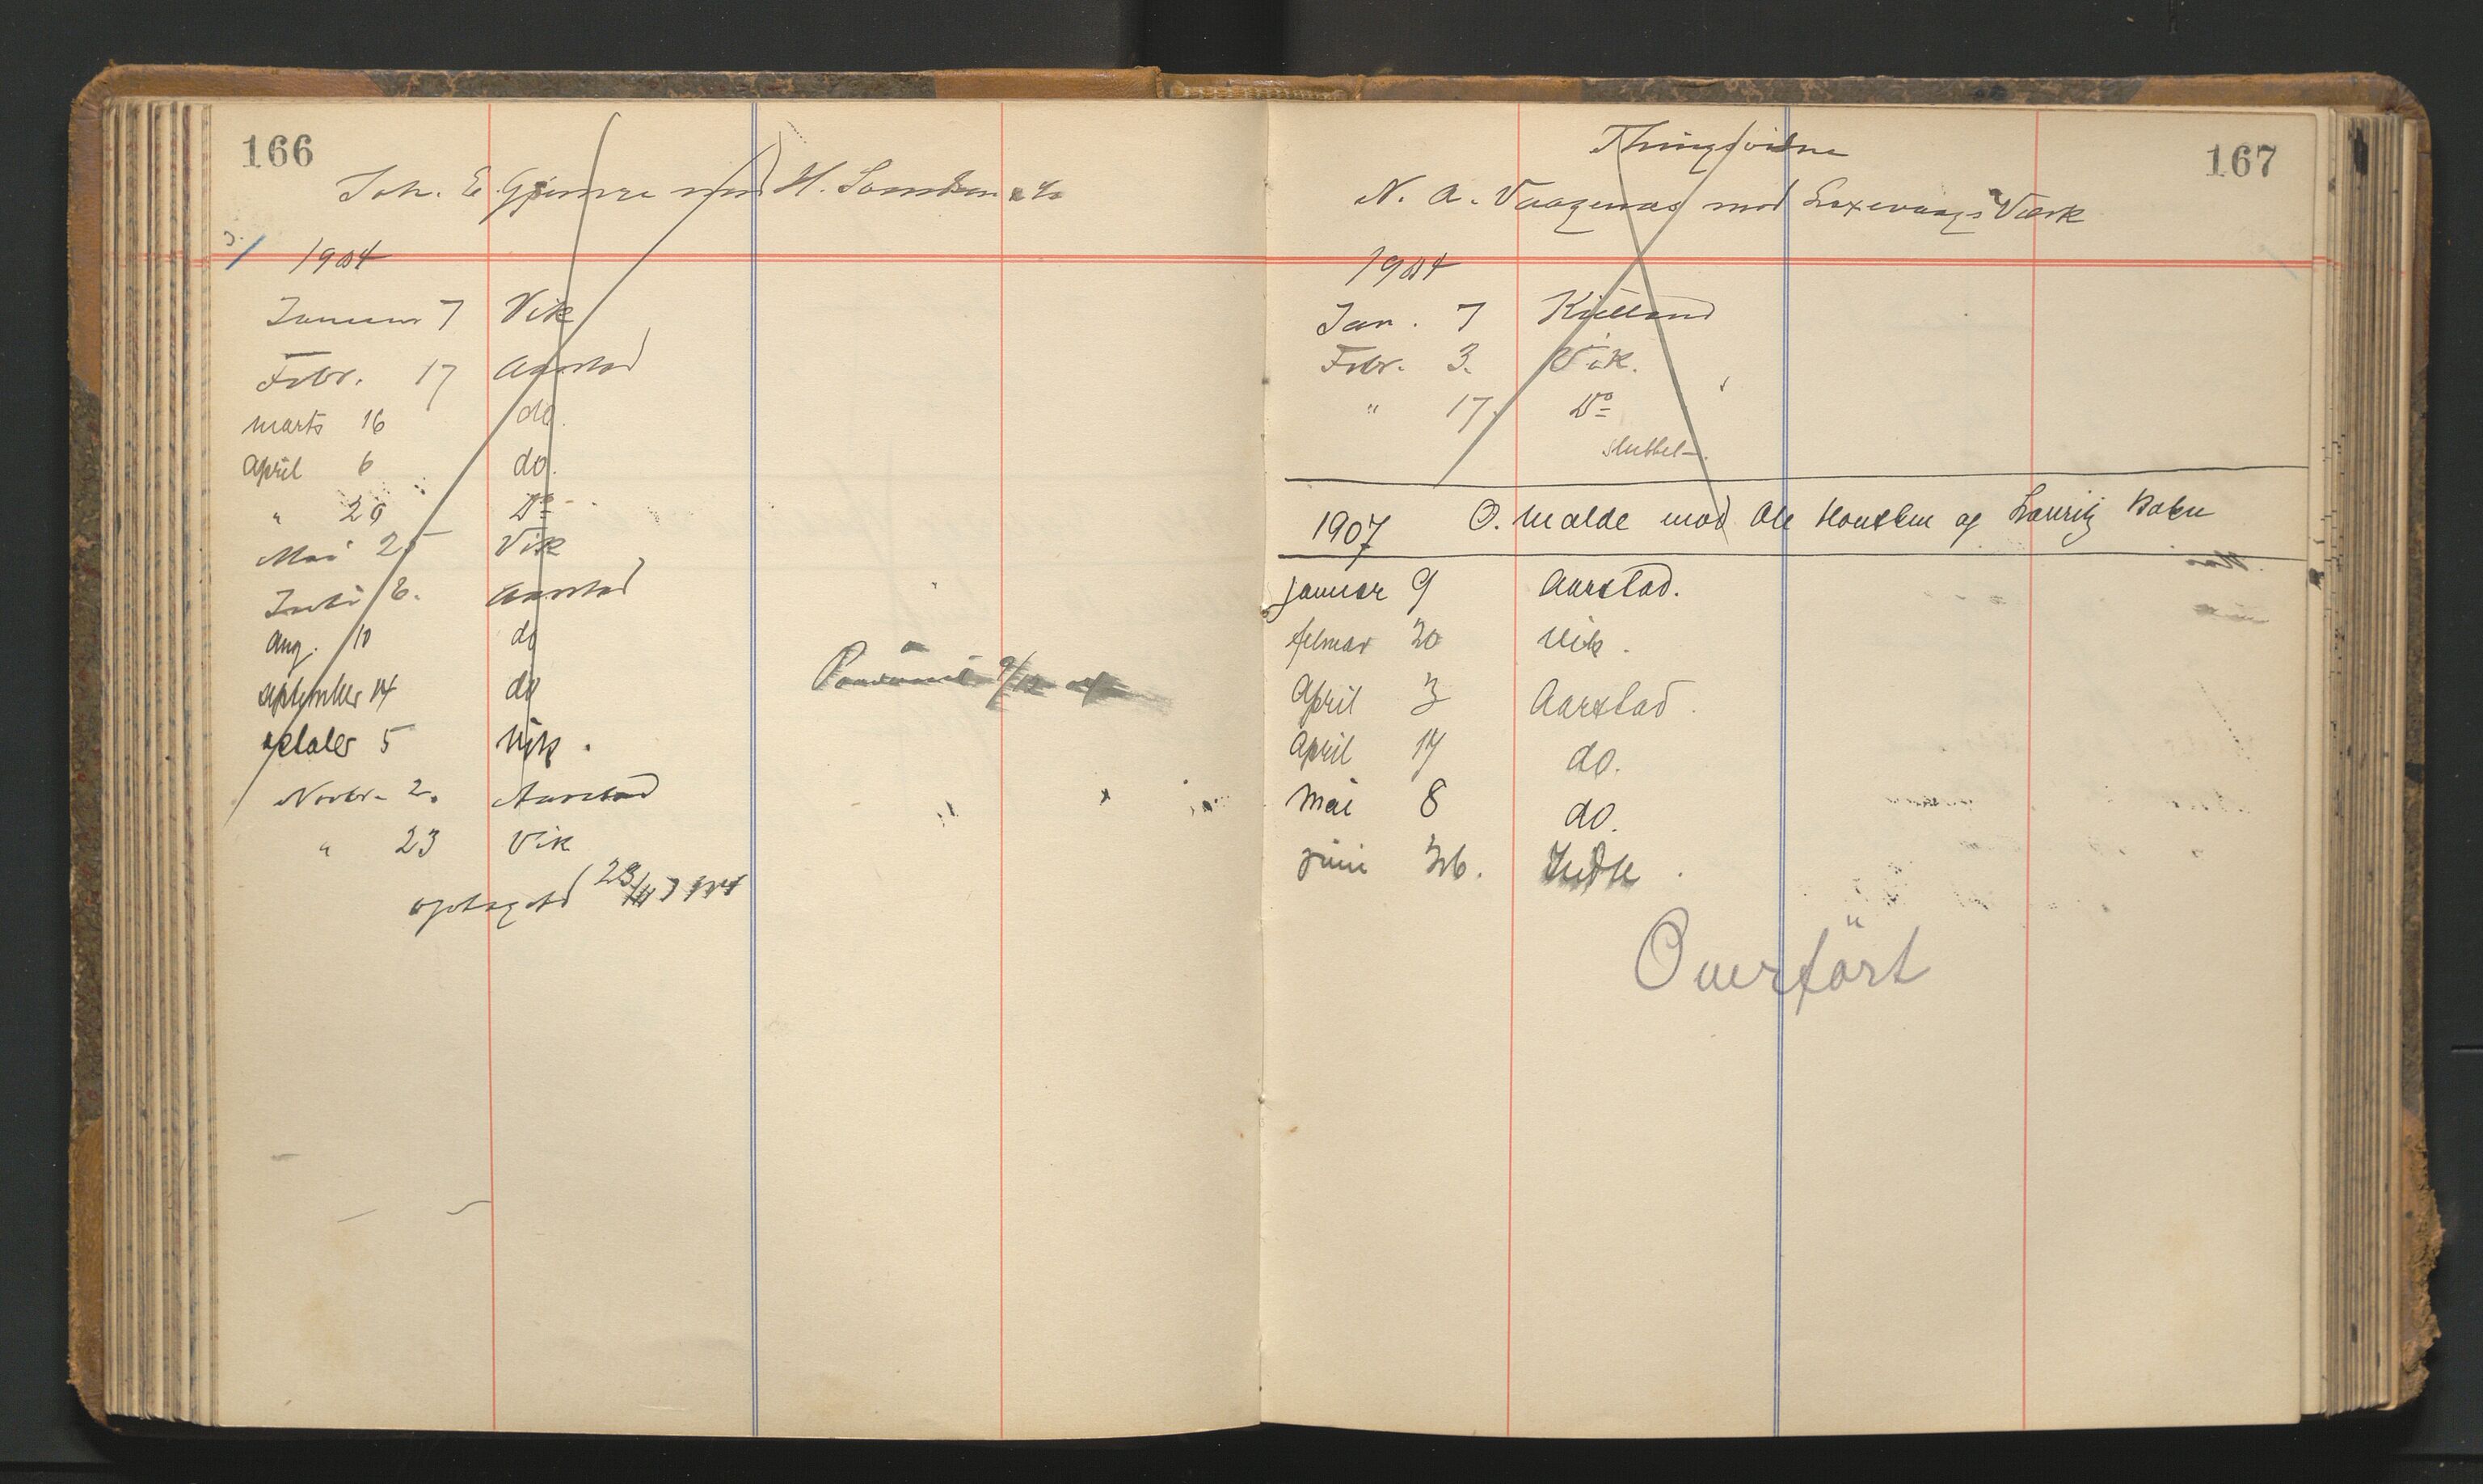 166
Joh. E. Gjemre mod H. Somdsen
1904
Januar 7 Vik
Febr. 17 Aarstad
marts 16 do.
april 6 do.
" 20 Do
Mai 25 Vik
Juli 6. Aarstad
aug. 10 do
september 14 do
oktober 5 Vik.
Novbr. 2. Aarstad
" 23 Vik
optaget 23/11
167
Thingsvidne
N. A. Vaagenæs mod Laxevaags Værk
1904
Jan. 7 Kielland
Febr. 3. Vik.
" 17. Do
sluttet.
1907 O. Malde mod Ole Hauken og Lauritz
januar 9 Aarstad.
februar 20 Vik.
April 3 Aarstad.
April 17 do.
Mai 8 do.
juni 26.
Overført